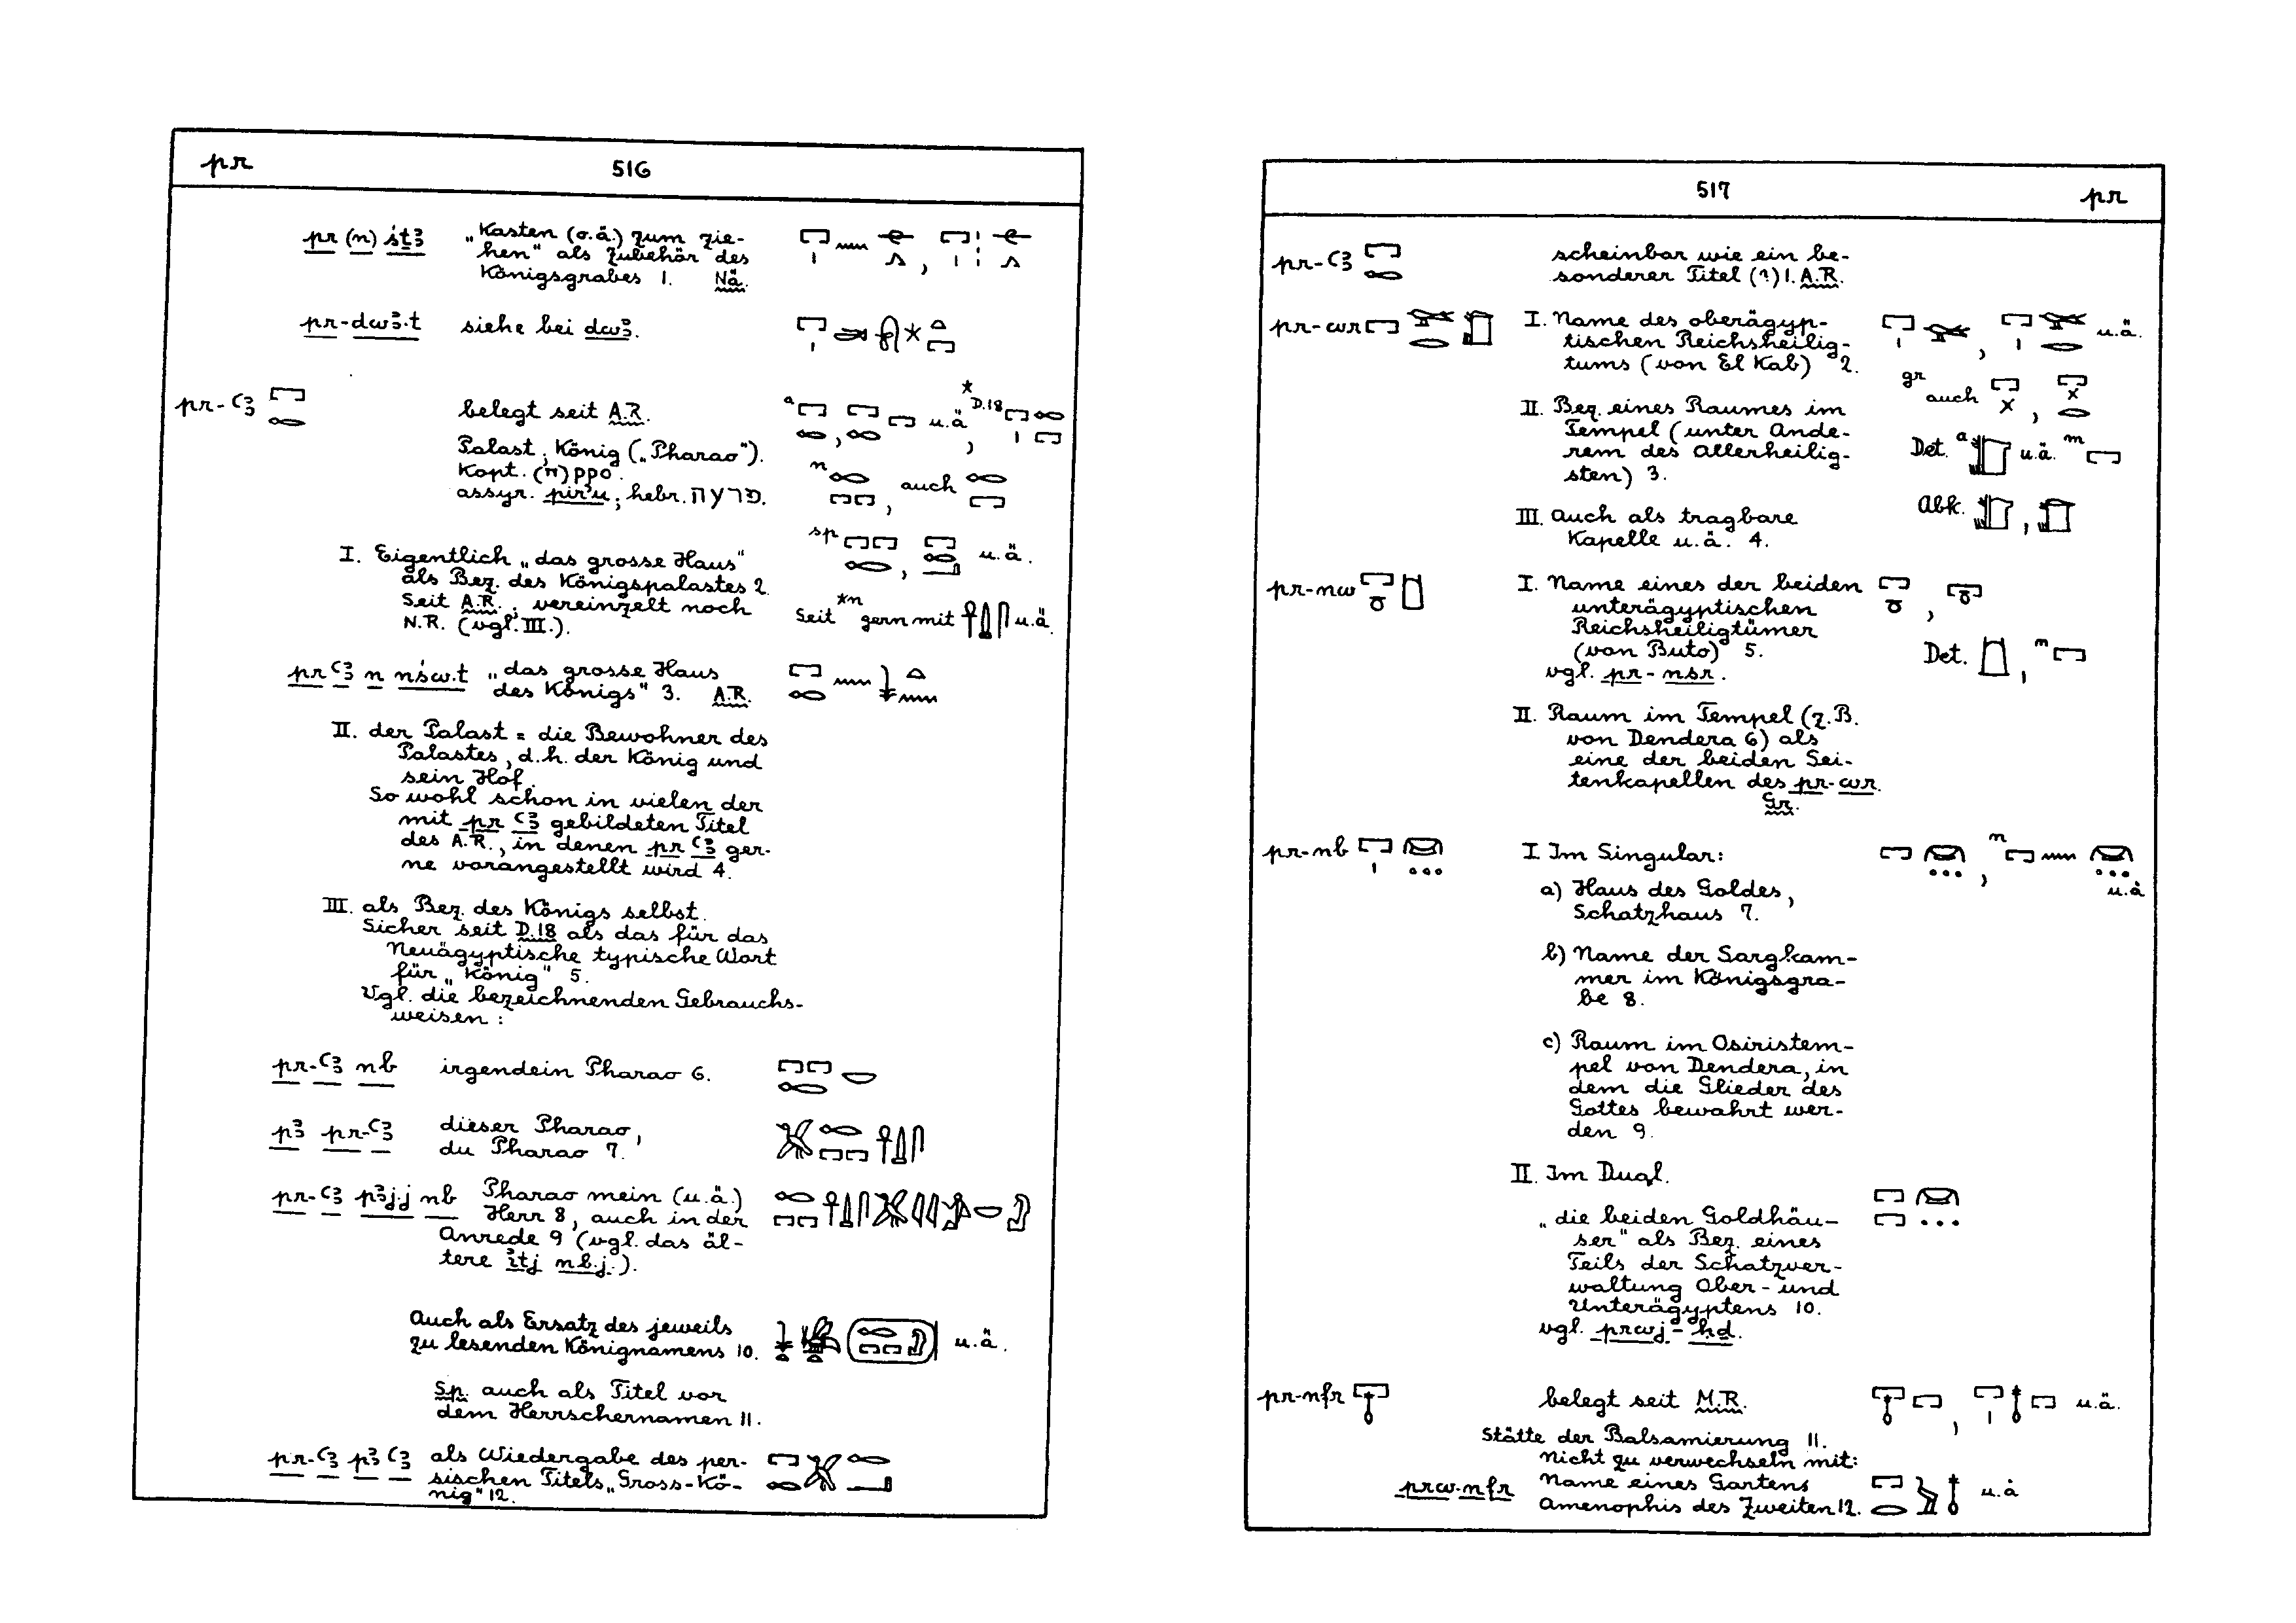 pr 516
pr (n) śṯꜣ „Kasten (o.ä.) zum zie-
hen“ als Zubehör des
Königsgrabes 1. Nä.
pr-dwꜣ.t siehe bei dwꜣ.
pr-ꜥꜣ belegt seit A.R. a u.ä., * D.18
Palast; König („Pharao“).
Kopt. (π)ppo.
n , auch
assyr. pir'u; hebr. פרעה.
sp , u.ä.
I. Eigentlich „das grosse Haus“
als Bez. des Königspalastes 2.
Seit A.R.; vereinzelt noch
N.R. (vgl. III.).
Seit *n gern mit u.ä.
pr ꜥꜣ n nśw.t „das grosse Haus
des Königs“ 3. A.R.
II. der Palast = die Bewohner des
Palastes, d.h. der König und
sein Hof.
So wohl schon in vielen der
mit pr ꜥꜣ gebildeten Titel
des A.R., in denen pr ꜥꜣ ger-
ne vorangestellt wird 4.
III. als Bez. des Königs selbst.
Sicher seit D.18 als das für das
Neuägyptische typische Wort
für „König“ 5.
Vgl. die bezeichnenden Gebrauchs-
weisen:
pr-ꜥꜣ nb irgendein Pharao 6.
pꜣ pr-ꜥꜣ dieser Pharao,
du Pharao 7.
pr-ꜥꜣ pꜣj.j nb Pharao mein (u.ä.)
Herr 8, auch in der
Anrede 9 (vgl. das äl-
tere ꜣtj nb.j.).
Auch als Ersatz des jeweils
zu lesenden Könignamens 10. u.ä.
Sp. auch als Titel vor
dem Herrschernamen 11.
pr-ꜥꜣ pꜣ ꜥꜣ als Wiedergabe des per-
sischen Titels „Gross-Kö-
nig“ 12.
517 pr
pr-ꜥꜣ scheinbar wie ein be-
sonderer Titel (?) 1. A.R.
pr-wr I. Name des oberägyp-
tischen Reichsheilig-
tums (von El Kab) 2.
, u.ä.
gr auch ,
II. Bez. eines Raumes im
Tempel (unter Ande-
rem des Allerheilig-
sten) 3.
Det. a u.ä. m
III. auch als tragbare
Kapelle u.ä. 4.
Abk. ,
pr-nw I. Name eines der beiden
unterägyptischen
Reichsheiligtümer
(von Buto) 5.
vgl. pr-nsr.
Det. , m
II. Raum im Tempel (z.B.
von Dendera 6) als
eine der beiden Sei-
tenkapellen des pr-wr.
Gr.
pr-nb I Im Singular: , n u.ä
a) Haus des Goldes,
Schatzhaus 7.
b) Name der Sargkam-
mer im Königsgra-
be 8.
c) Raum im Osiristem-
pel von Dendera, in
dem die Glieder des
Gottes bewahrt wer-
den 9.
II. Im Dual.
„die beiden Goldhäu-
ser“ als Bez. eines
Teils der Schatzver-
waltung Ober- und
Unterägyptens 10.
vgl. prwj-ḥḏ.
pr-nfr belegt seit M.R. , u.ä.
Stätte der Balsamierung 11.
nicht zu verwechseln mit:
prw-nfr Name eines Gartens
Amenophis des Zweiten 12. u.ä